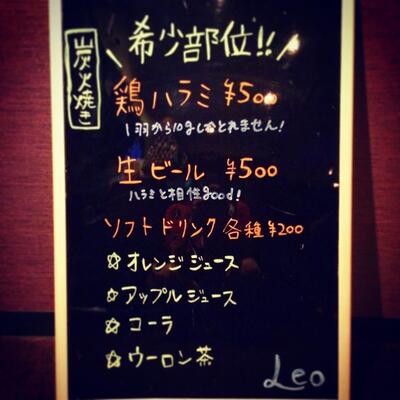 炭火焼き
＼希少部位!!／
鶏ハラミ ¥500
1羽から10gしかとれません!
生ビール ¥500
ハラミと相性good!
ソフトドリンク 各種¥200
☆オレンジジュース
☆アップルジュース
☆コーラ
☆ウーロン茶
Leo